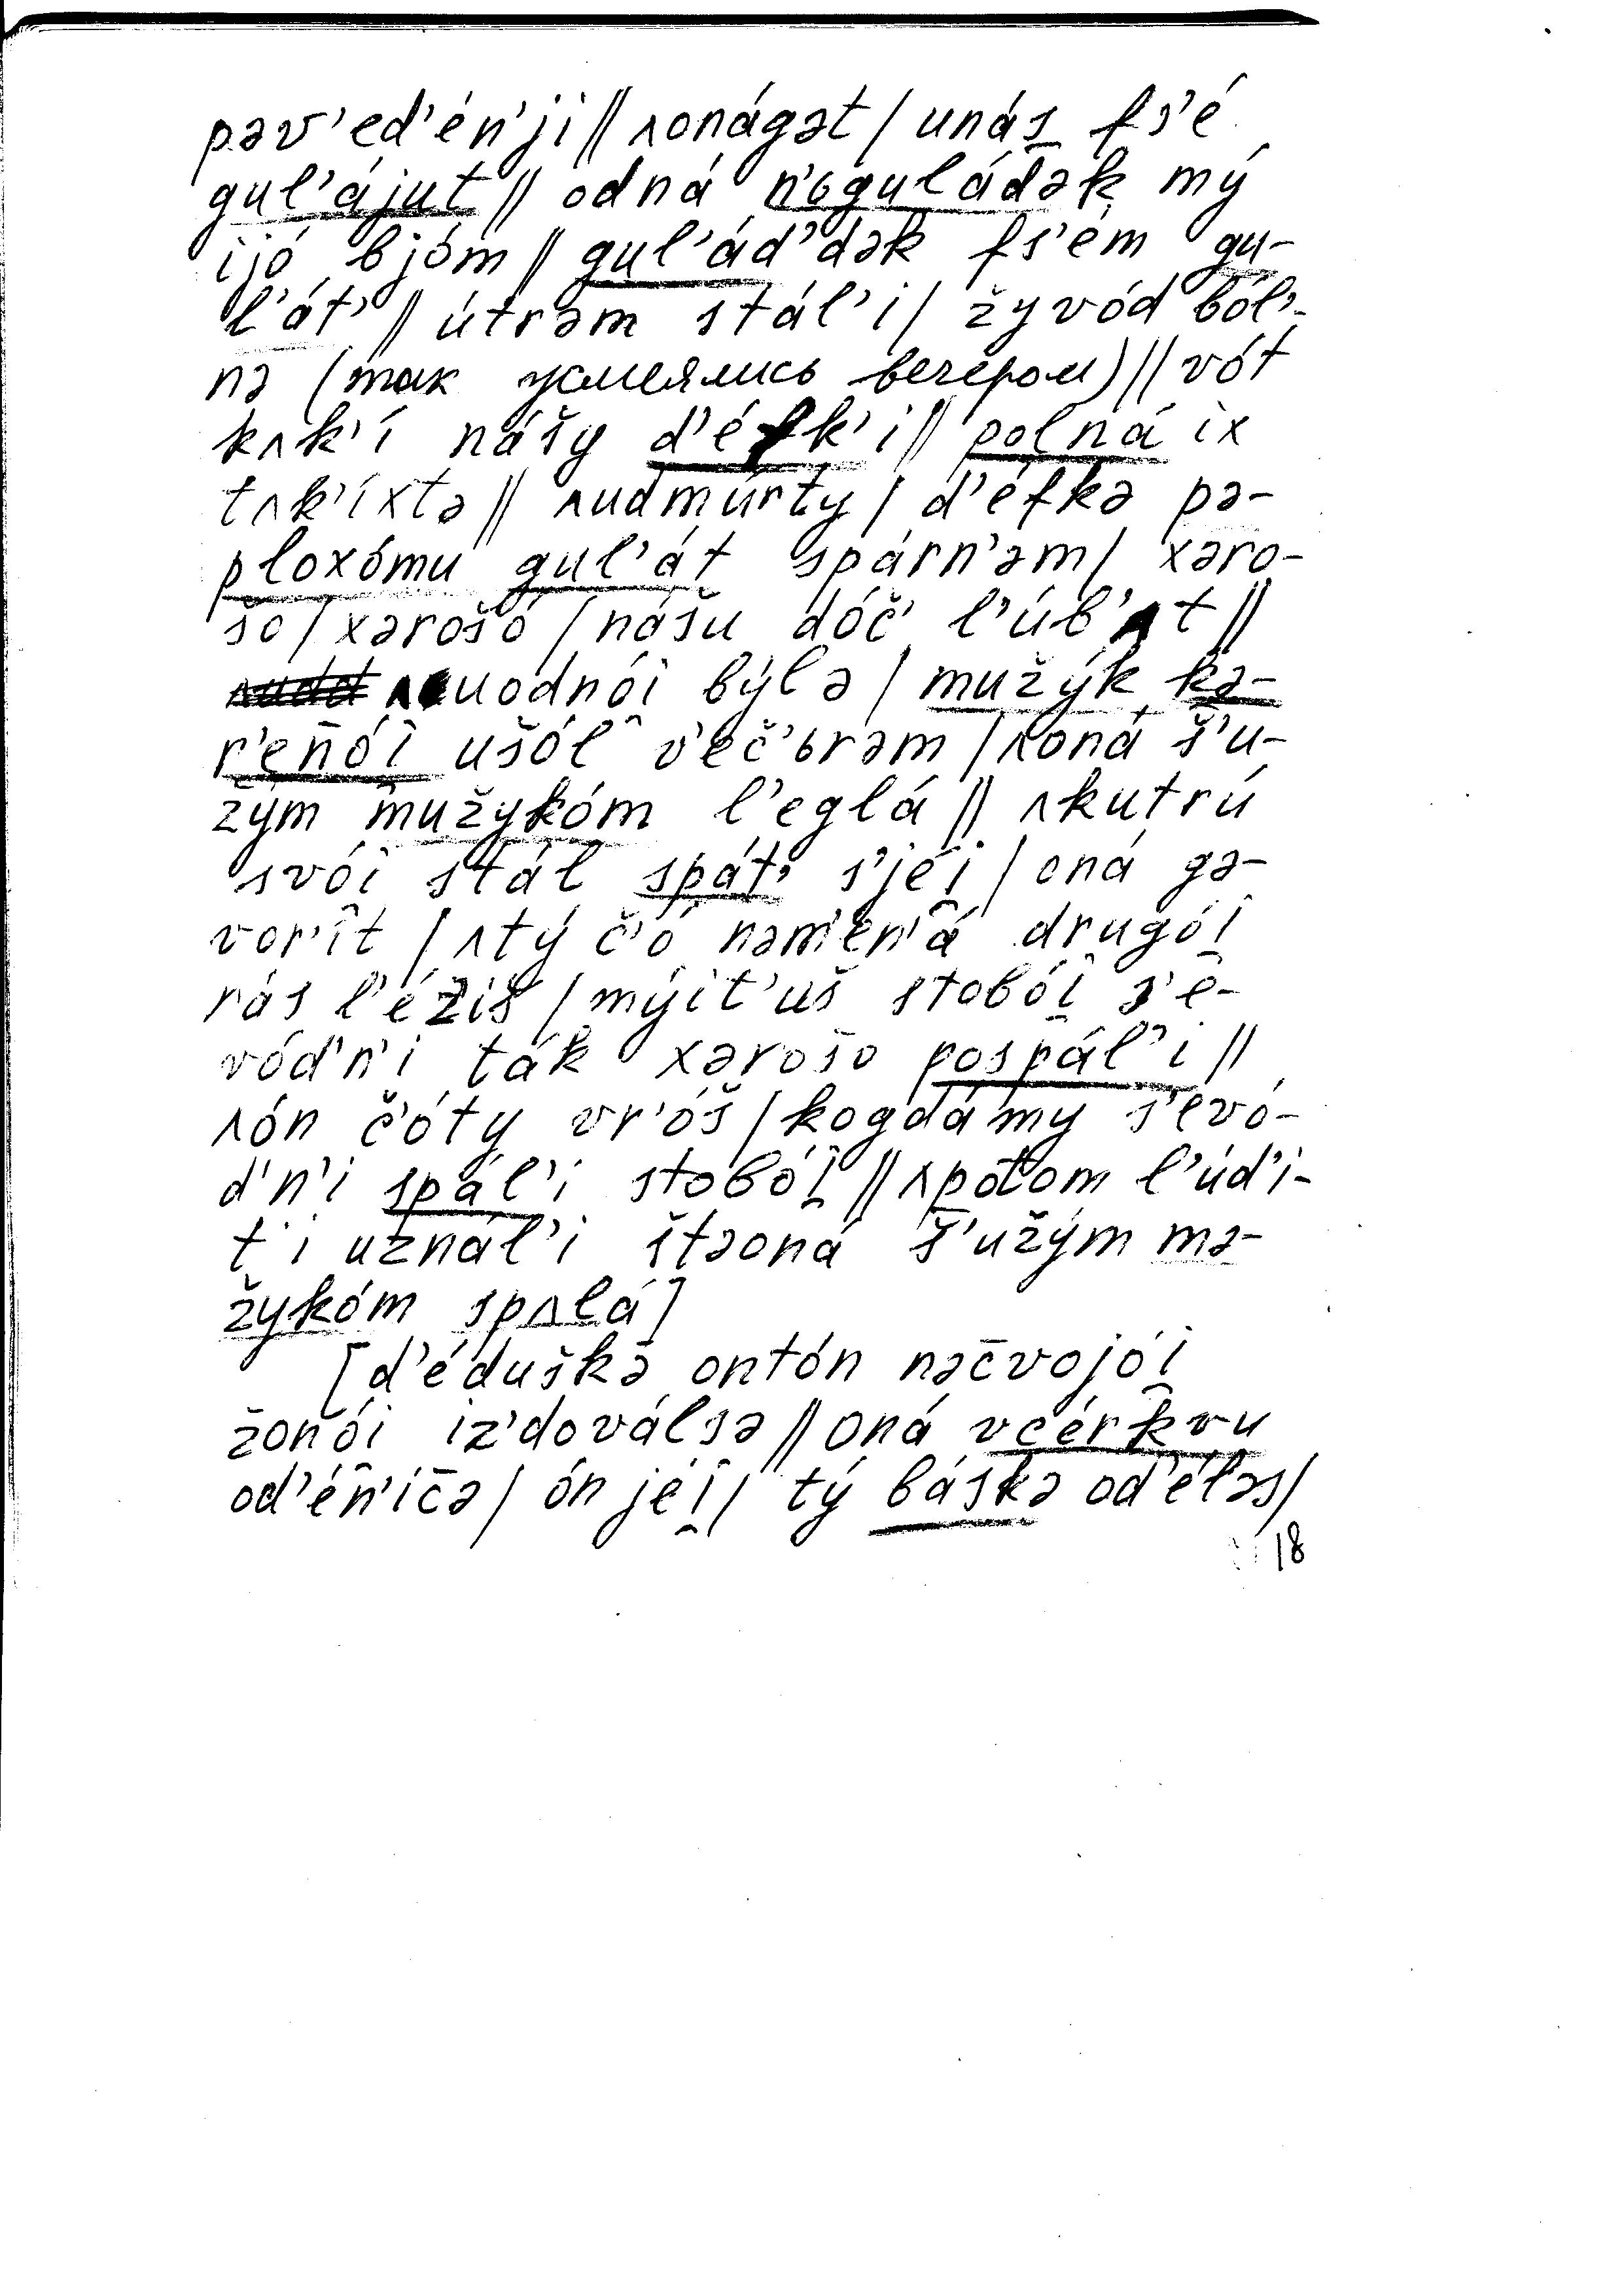 pəv’ed’én’ji || ʌonágət / unás fs’é
gul’ájut || odná n’ogul’ádək mý
ijó bjóm || gul’ád’dək fs’ém gu-
l’át’ || útrəm stál’i / žyvód ból’-
nə (так усмеялись вечером) || vót
kʌk’í nášy d’éfk’i || polná ix
tʌk’íxtə || ʌudmúrty / d’éfkə pə-
ploxómu gul’át spárn’əm / xəro-
šo / xərošó / nášu dóč’ l’úb’ʌt ||
ʌuodnói býlə / mužýk kə-
r’enói ušól v’éč’ьrəm / ʌoná š’u-
žým mužykóm l’eglá || ʌkutrú
svói stál spát’ s’jéi̯ / oná gə-
vor’ít / ʌtý č’ó nəmen’á drugói̯
rás l’éžiš / mýit’uš stobói̯ s’e-
vód’n’i ták xərošo pospál’i ||
ʌón č’óty vr’óš / kogdámy s’evó-
d’n’i spál’i stobói̯ || ʌpotom l’úd’i-
t’i uznál’i štəoná š’užým mə-
žykóm spʌlá]
[d’éduškə ontón nəc̄vojói̯
žonói iz’dováls̯ə || oná vcérkvu
od’én’ic̄ə / ón jéi̯ / tý báskə od’éləs /
18